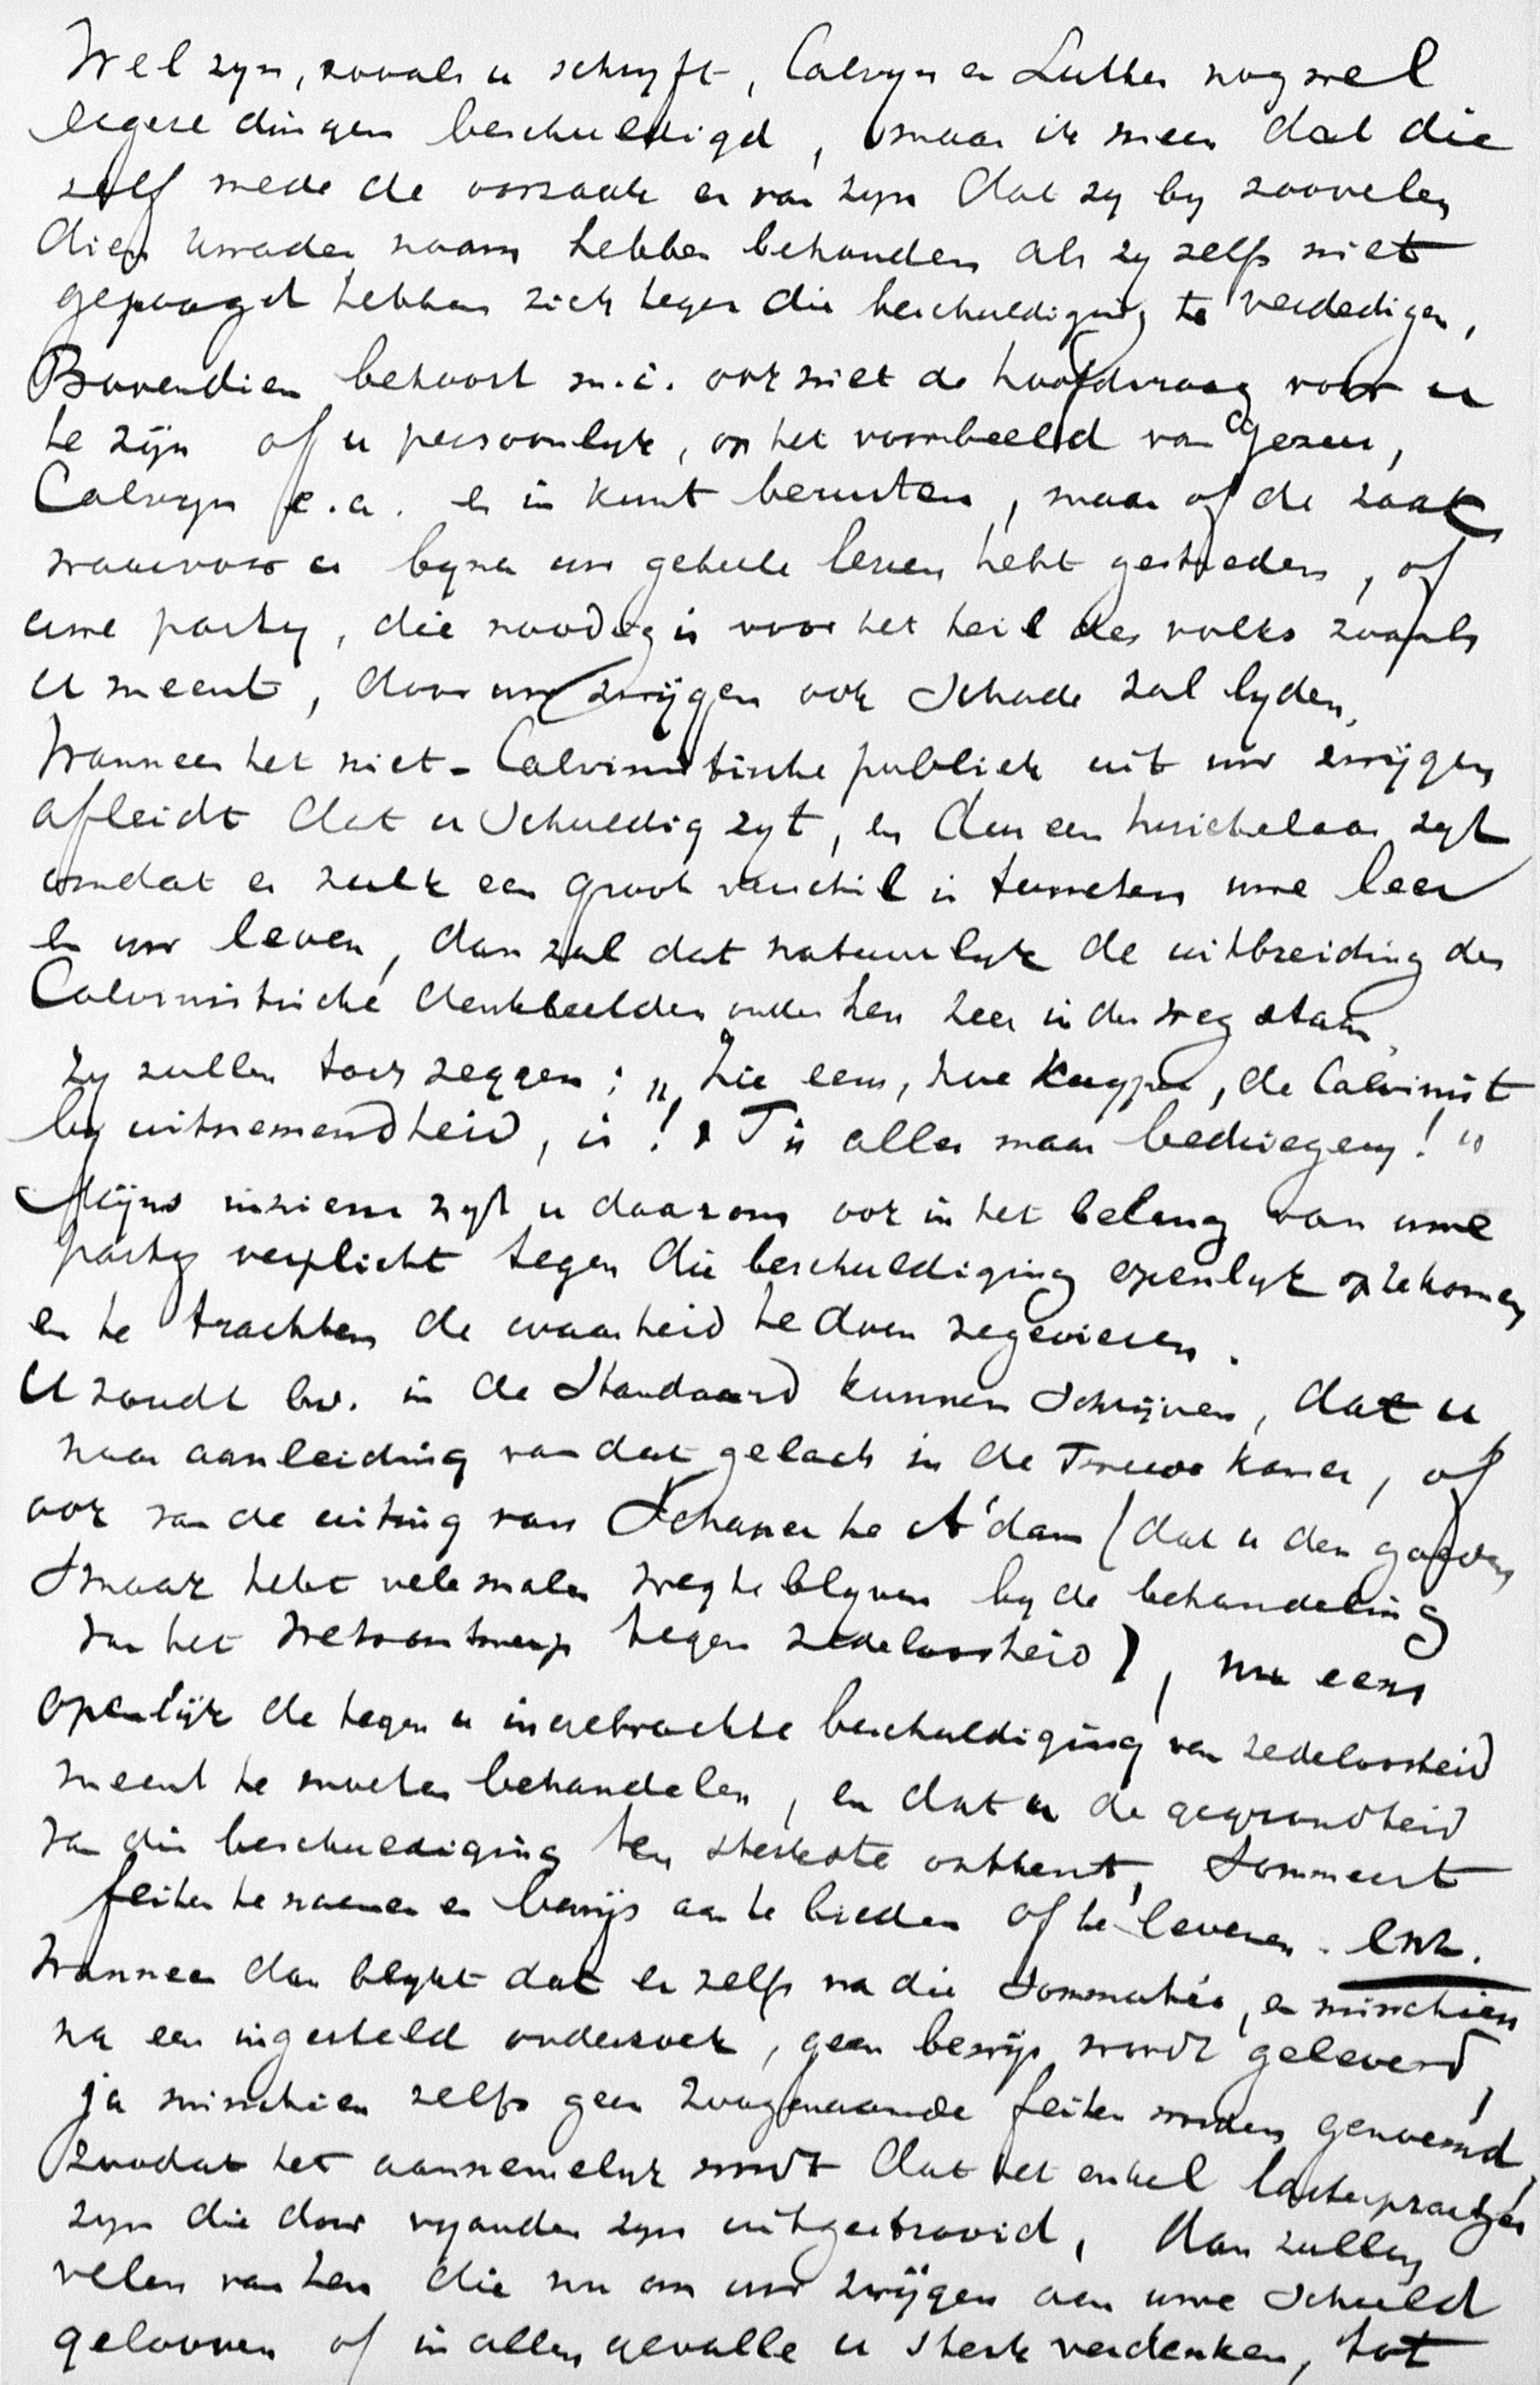 Wel zyn, zooals u schryft, Calvyn en Luther nog wel
ergere dingen beschuldigd, maar ik meen dat die
zelf mede de oorzaak er van zyn dat zy by zoovelen
dien kwaden naam hebben behouden als zy zelfs niet
gepoogd hebben zich tegen die beschuldiging te verdedigen,
Bovendien behoort m.i. ook niet de hoofdvraag voor u
te zijn of u persoonlyk, op het voorbeeld van Jezus,
Calvyn e.a. er in kunt berusten, maar of de zaak
waarvoor u byna uw geheele leven hebt gestreden, of
uwe party, die noodig is voor het heil des volks zooals
u meent, door uw zwijgen ook schade zal lyden.
Wanneer het niet-Calvinistische publiek uit uw zwijgen
afleidt dat u schuldig zyt, en dus een huichelaar zyt
omdat er zulk een groot verschil is tusschen uwe leer
en uw leven, dan zal dat natuurlyk de uitbreiding der
Calvinistische denkbeelden onder hen zeer in den weg staan,
Zy zullen toch zeggen: „Zie eens, hoe Kuyper, de Calvinist
by uitnemendheid, is! 't Is alles maar bedriegery!"
Mijns inziens zyt u daarom ook in het belang van uwe
party verplicht tegen die beschuldiging openlyk op te komen
en te trachten de waarheid te doen zegevieren.
U zoudt bv. in de Standaard kunnen schrijven, dat u
naar aanleiding van dat gelach in de Tweede Kamer, of
ook van de uiting van Schaper te A'dam (dat u den goeden
smaak hebt velemalen weg te blyven by de behandeling
van het wetsontwerp tegen zedeloosheid), nu eens
openlijk de tegen u ingebrachte beschuldiging van zedeloosheid
meent te moeten behandelen, en dat u de gegrondheid
van die beschuldiging ten sterkste ontkent, sommeert
feiten te noemen en bewijs aan te bieden of te leveren. enz.
Wanneer dan blykt dat er zelfs na die sommatie, en misschien
na een ingesteld onderzoek, geen bewijs wordt geleverd,
ja misschien zelfs geen zoogenaamde feiten worden genoemd,
zoodat het aannemelyk wordt dat het enkel lasterpraatjes
zyn die door vyanden zyn uitgestrooid, dan zullen
velen van hen die nu om uw zwijgen aan uwe schuld
gelooven of in allen gevalle u sterk verdenken, tot